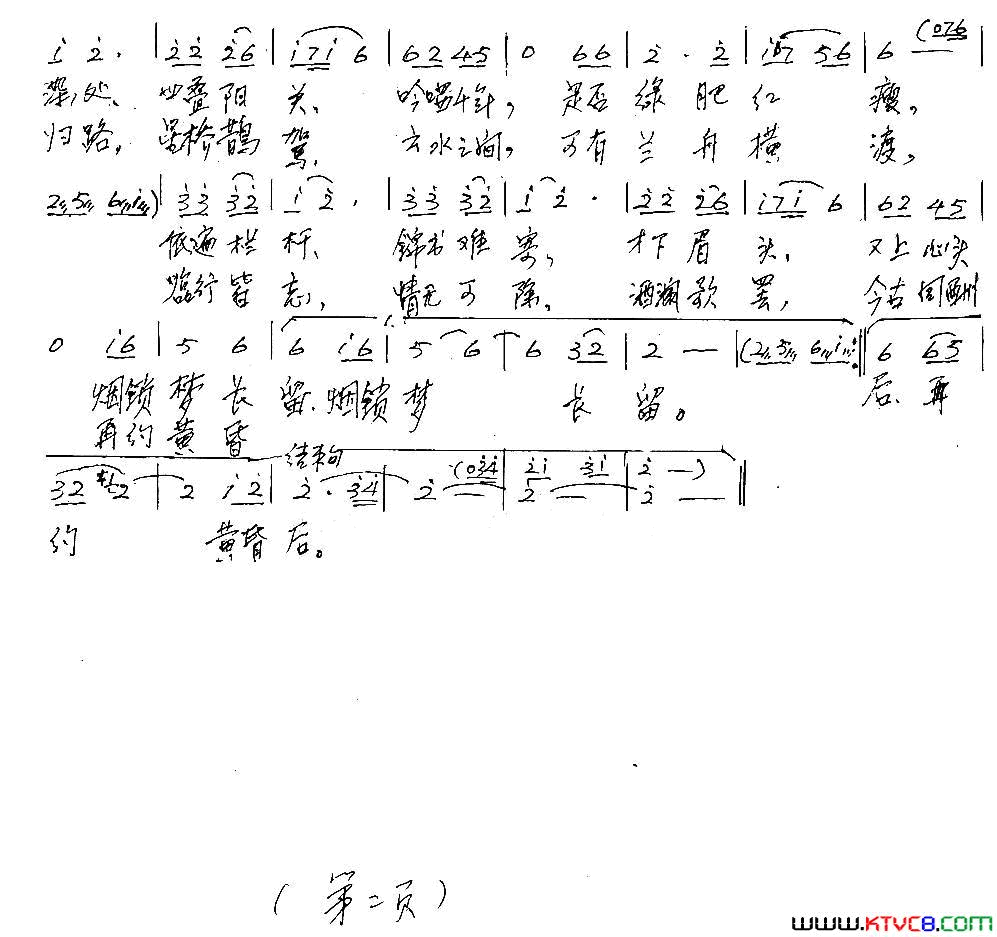 i 2 · | 2 2 2 6 | i 7 i 6 | 6 2 4 5 | 0 6 6 | 2 · 2 | i 7 5 6 | 6 (0 7 6 |
深处、 四叠阳 关、 吟唱千年, 是否 绿 肥 红 瘦。
归路, 星桥鹊 驾、 云水之间, 可有 兰 舟 横 渡,
2 5 6 i) | 3 3 3 2 | i 2 · | 3 3 3 2 | i 2 · | 2 2 2 6 | i 7 i 6 | 6 2 4 5 |
依遍栏 杆、 锦书难 寄, 才下眉 头、 又上心头
皆 忘, 情无可 除。 酒阑歌 罢, 今古同酬
0 i 6 | 5 6 | 6 i 6 | 5 6 | 6 3 2 | 2 — | (2 5 6 i :‖ 6 6 5 |
烟锁 梦 长 留、烟锁 梦 长 留。 后、再
再约 黄 昏
结束句
3 2 2 | 2 i 2 | 2 · 3 4 | 2 — (0 3 4 | 2 i 3 i | 2 —) ‖
2 — | 2 —
约 黄昏 后。
(第二页)
www.KTVC8.com